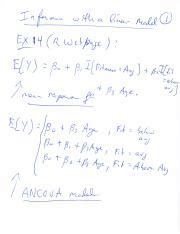 Inference with a linear Model ①
EX 14 (R Web page):
E(Y) = β₀ + β₁ I[Fitness = Avg] + β₂ I[Fitness = above avg]
+ β₃ Age
E(Y) = { β₀ + β₃ Age, Fit = below avg
β₀ + β₁ + β₃ Age, Fit = avg
β₀ + β₂ + β₃ Age, Fit = Above Avg
ANCOVA model